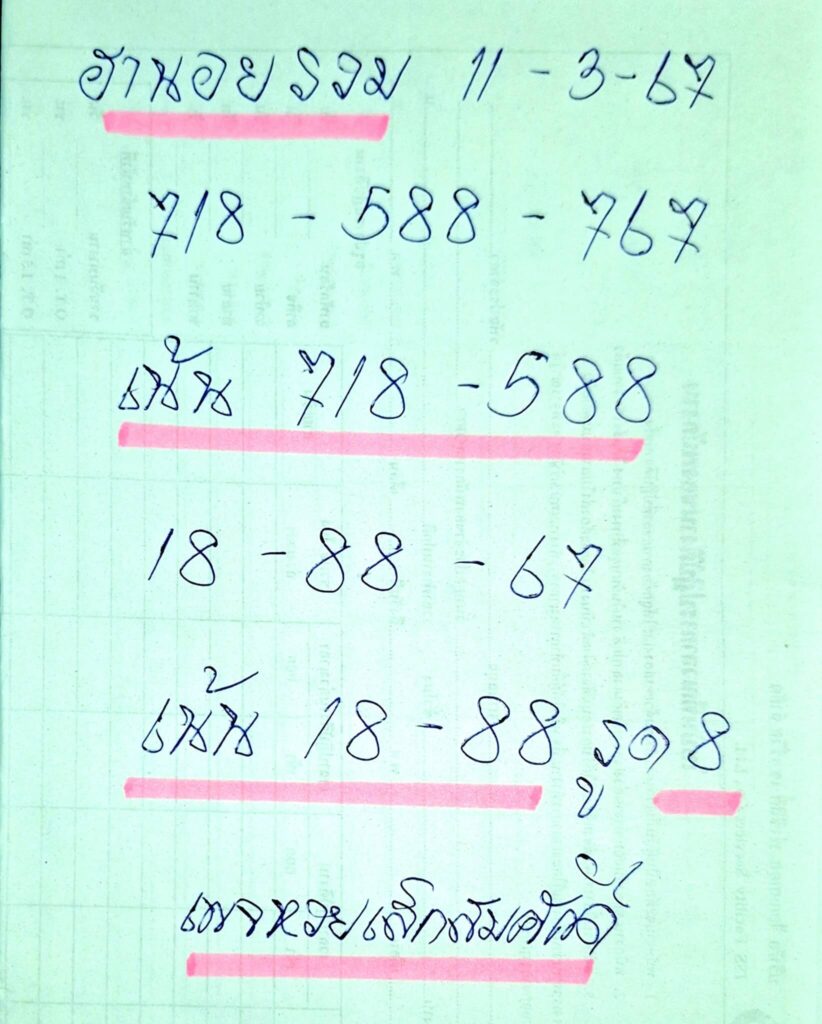 ฮานอย รวม 11 - 3 - 67
718 - 588 - 767
เน้น 718 - 588
18 - 88 - 67
เน้น 18 - 88 รูด 8
เพจหวยเล็กสมศักดิ์